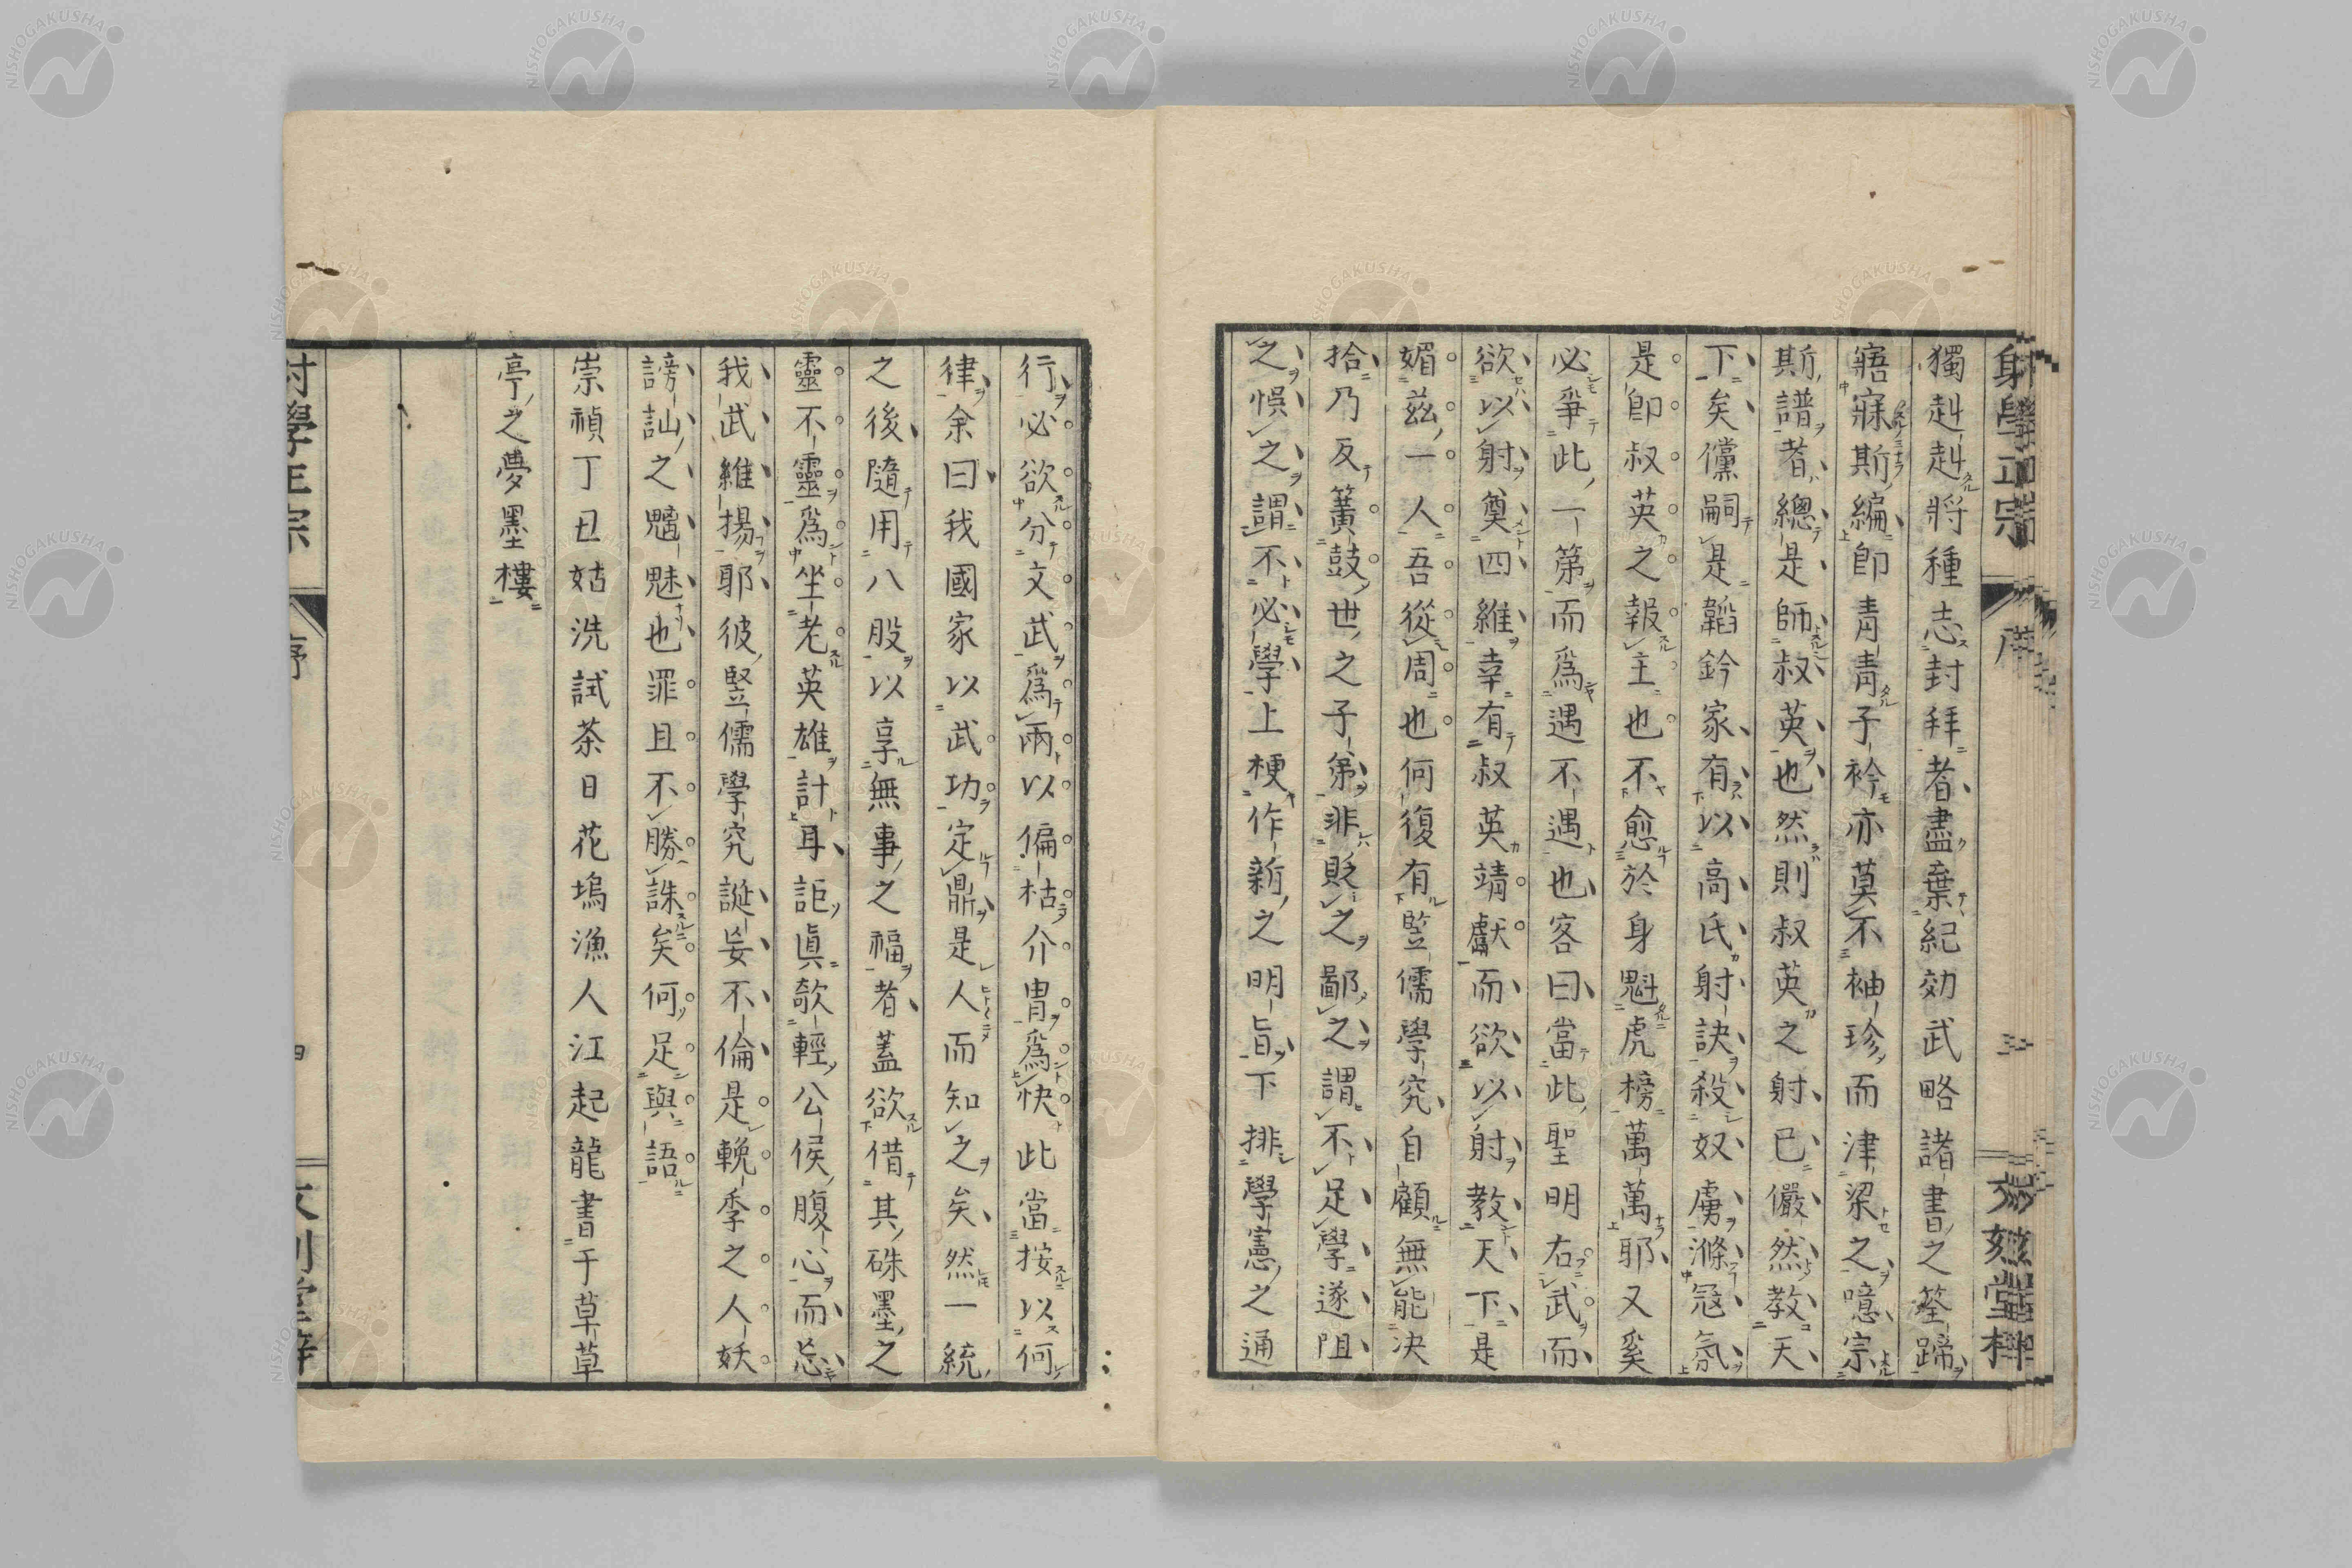 射學正宗 序 文刻堂梓
獨赳赳將種志封拜者盡棄紀効武略諸書之筌蹄
寤寐斯編卽靑靑子衿亦莫不袖珍而津梁之噫宗
斯譜者總是師叔英也然則叔英之射已儼然敎天
下矣儻嗣是韜鈐家有以高氏射訣殺奴虜滌冦氛
是卽叔英之報主也不愈於身魁虎榜萬萬耶又奚
必爭此一第而爲遇不遇也客曰當此聖明右武而
欲以射奠四維幸有叔英靖獻而欲以射敎天下是
媚茲一人吾從周也何復有豎儒學究自顧無能決
拾乃反簧鼓世之子弟非貶之鄙之謂不足學遂阻
之悞之謂不必學上梗作新之明旨下排學憲之通
行必欲分文武爲兩以偏枯介胄爲快此當按以何
律余曰我國家以武功定鼎是人而知之矣然一統
之後隨用八股以享無事之福者蓋欲借其硃墨之
靈不靈爲坐老英雄計耳詎眞欹輕公侯腹心而忘
我武維揚耶彼豎儒學究誕妄不倫是輓季之人妖
謗訕之魑魅也罪且不勝誅矣何足與語
崇禎丁丑姑洗試茶日花塢漁人江起龍書于草草
亭之夢墨樓
射學正宗 序 四 文刻堂梓
NISHOGAKUSHA